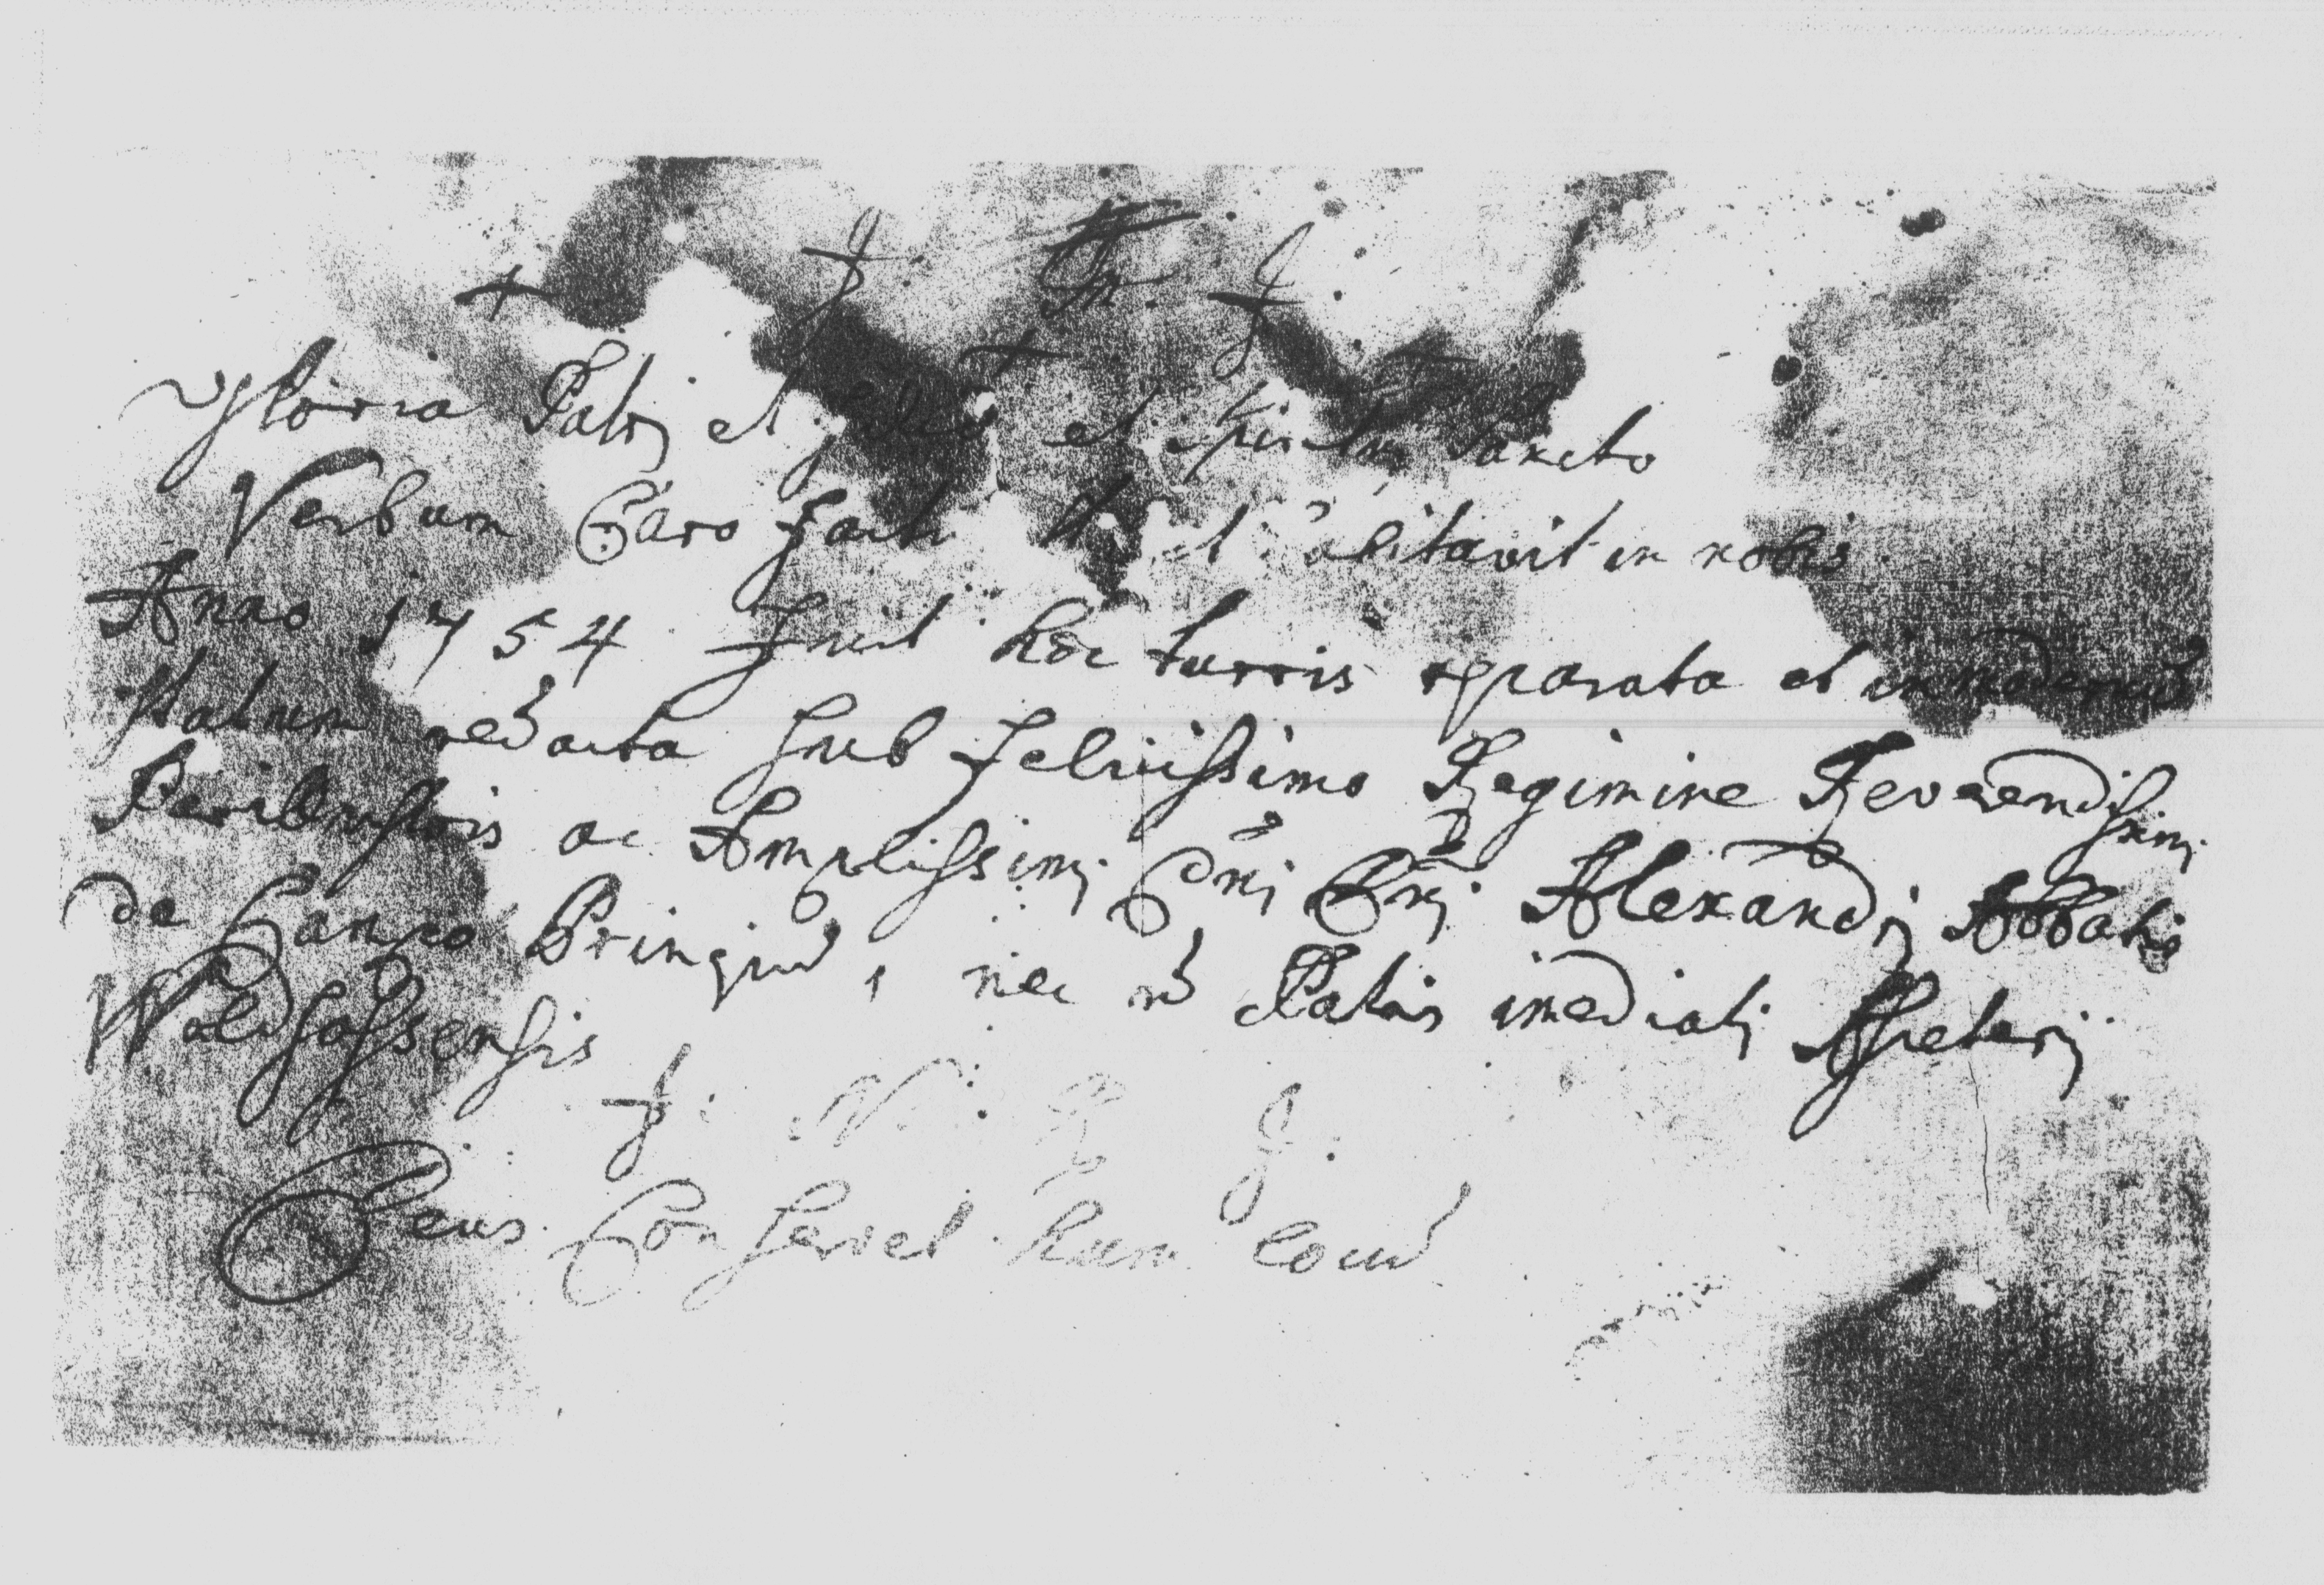 J. M. J.
Gloria Patrj et filio et Spiritui Sancto
Verbum Caro factū et habitavit in nobis.
Anno 1754 fuit hæc turris reparata et in modernū
statum redacta sub felicissimo Regimine Reverendissimi
Perillustris ac Amplissimj Dn̄j Dn̄j Alexandrj Abbatis
de Campo Principū, nec nō Patris im̄ediatj Asseterij
Waldsassensis
J: N. R. J.
Deus Conservet hunc locū